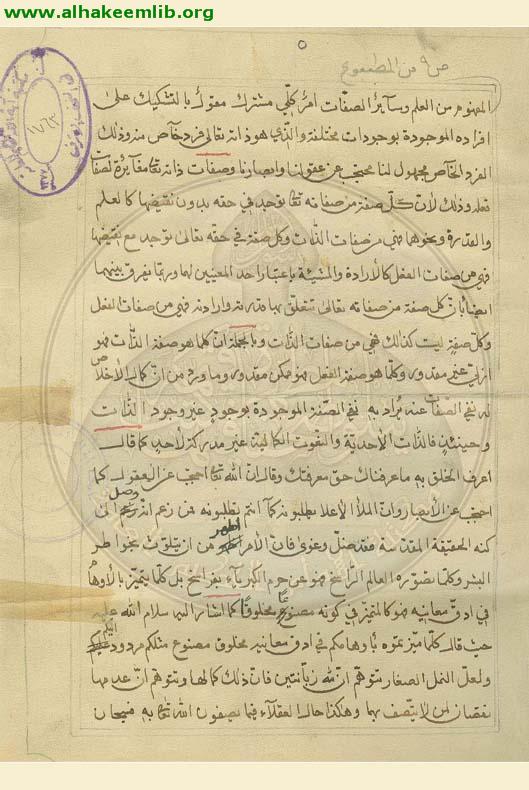 www.alhakeemlib.org
٥
ص٩ من المطبوع
المفهوم من العلم وسائر الصفات امر كلي مشترك مقول بالتشكيك على
افراده الموجودة بوجودات مختلفة والذي هو ذاته تعالى فرد خاص منه وذلك
الفرد الخاص مجهول لنا محتجب عن عقولنا وابصارنا وصفات ذاته تعا مغايرة لصفا
فعله وذلك لان كل صفة من صفاته تعا توجد في حقه بدون نقيضها كالعلم
والقدرة ونحوهما فهي من صفات الذات وكل صفة في حقه تعالى توجد مع نقيضها
فهي من صفات الفعل كالارادة والمشية باعتبار احد المعنيين لها وربما نفرق بينهما
ايضا بان كل صفة من صفاته تعالى تتعلق بها قدرته وارادته فهي من صفات الفعل
وكل صفة ليست كذلك فهي من صفات الذات وبالجملة ان كلما هو صفة الذات فهو
ازلي غير مقدور وكلما هو صفة الفعل فهو ممكن مقدور وما ورد من ان كمال الاخلاص
له نفي الصفات عنه يراد به نفي الصفة الموجودة بوجود غير وجود الذات
وحينئذ فالذات الاحدية والنعوت الكمالية غير مدركة لاحد كما قال
اعرف الخلق به ما عرفناك حق معرفتك وقال ان الله تعا احتجب عن العقول كما
احتجب عن الابصار وان الملأ الاعلا يطلبونه كما انتم تطلبونه فمن زعم انه وصل الى
كنه الحقيقة المقدسة فقد ضل وغوى فان الامر اطهر من ان يتلوث بخواطر
البشر وكلما تصوره العالم الراسخ فهو عن حرم الكبرياء بفراسخ بل كلما يتميز بالاوهام
في ادق معانيه فهو كالمتميز في كونه مصنوعا مخلوقا كما اشار اليه سلام الله عليه
حيث قال كلما ميزتموه باوهامكم في ادق معانيه مخلوق مصنوع مثلكم مردود اليكم
ولعل النمل الصغار تتوهم ان لله زبانتين فان ذلك كمالها وتتوهم ان عدمها
نقصان لمن لا يتصف بهما وهكذا حال العقلاء فيما يصفون الله تعا به فسبحان